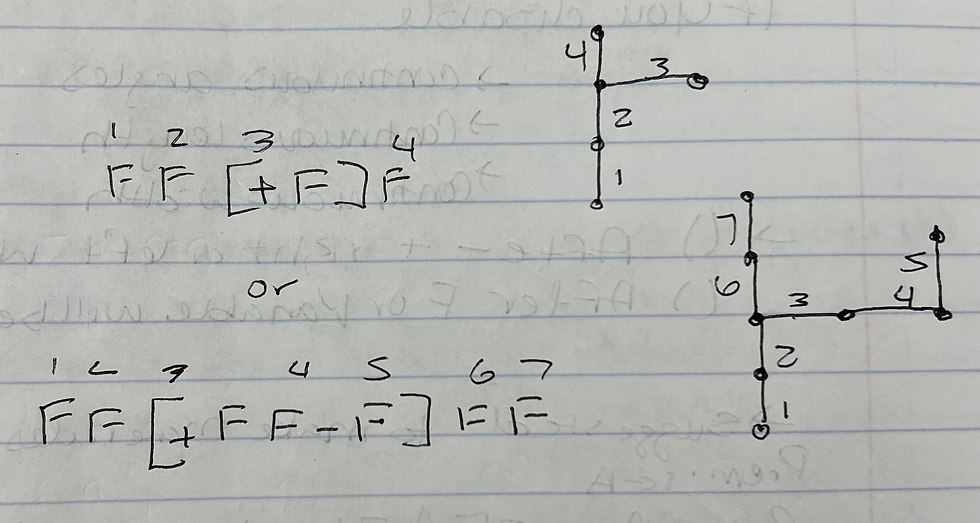 4
3
2
1
1 2 3 4
F F [+ F] F
or
7
6
5
3 4
2
1
1 2 3 4 5 6 7
F F [+ F F - F] F F